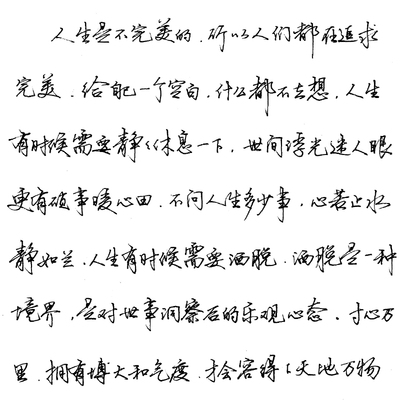 人生是不完美的,所以人们都在追求
完美,给自己一个空白,什么都不去想,人生
有时候需要静静休息一下,世间浮光迷人眼
更有琐事暖心田,不问人生多少事,心若止水
静如兰,人生有时候需要洒脱,洒脱是一种
境界,是对世事洞察后的乐观心态,寸心万
里,拥有博大和气度,才会容得了天地万物